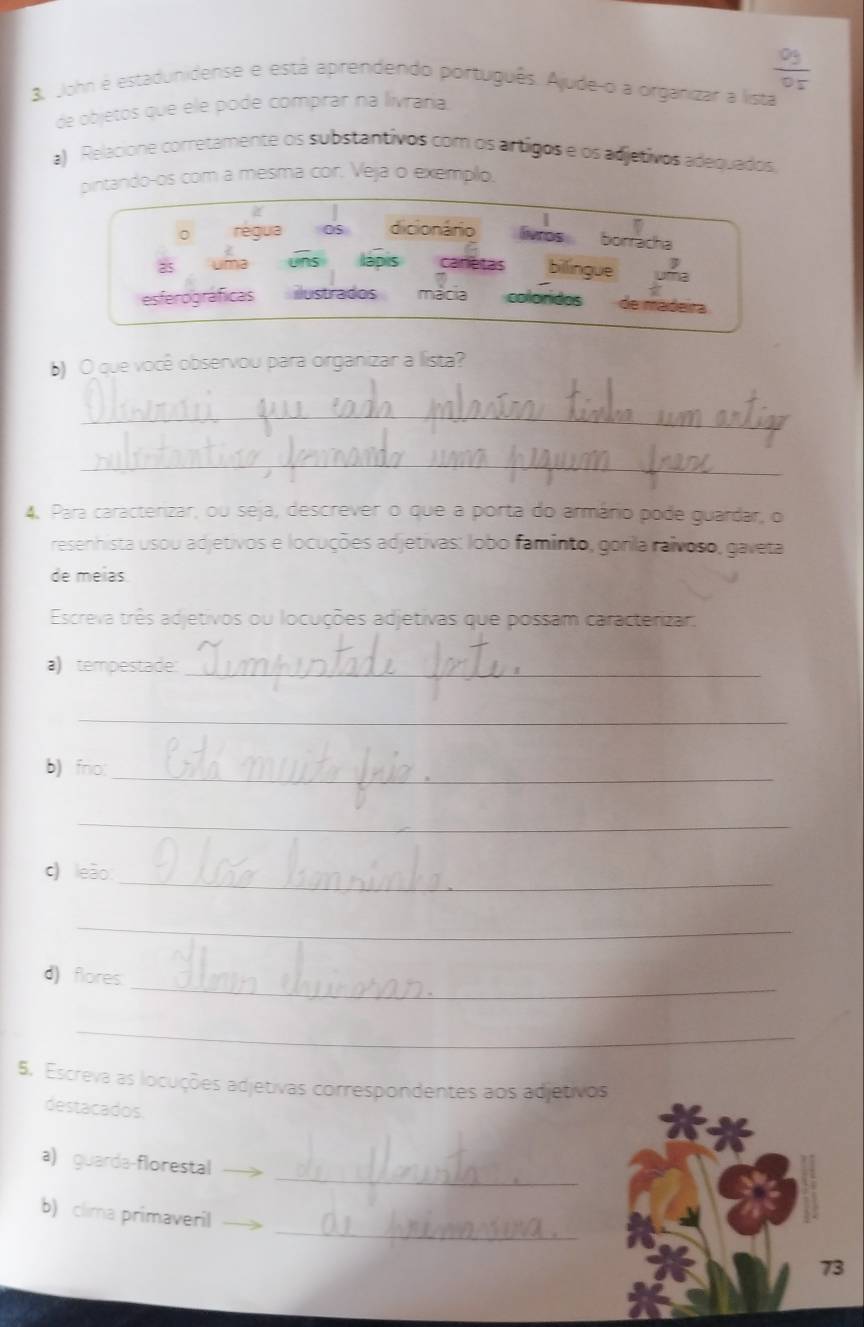 09
05
3. John é estadunidense e está aprendendo português. Ajude-o a organizar a lista
de objetos que ele pode comprar na livraria.
a) Relacione corretamente os substantivos com os artigos e os adjetivos adequados,
pintando-os com a mesma cor. Veja o exemplo.
o régua os dicionário livros borracha
as uma uns lápis canetas bilíngue uma
esferográficas ilustrados macia coloridos de madeira
b) O que você observou para organizar a lista?
que cada palavra tinha um artigo
substantivo, formando uma frase
4. Para caracterizar, ou seja, descrever o que a porta do armário pode guardar, o
resenhista usou adjetivos e locuções adjetivas: lobo faminto, gorila raivoso, gaveta
de meias.
Escreva três adjetivos ou locuções adjetivas que possam caracterizar:
a) tempestade: Tempestade forte.
b) frio: Está muito frio.
c) leão: O leão
d) flores: Flores cheirosas.
5. Escreva as locuções adjetivas correspondentes aos adjetivos
destacados.
a) guarda-florestal de floresta.
b) clima primaveril de primavera.
73